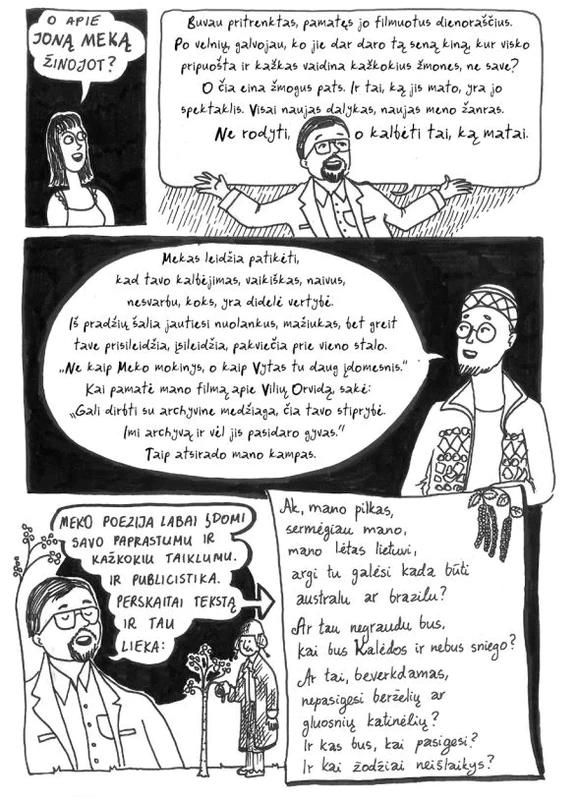 O APIE
JONĄ MEKĄ
ŽINOJOT?
Buvau pritrenktas, pamatęs jo filmuotus dienoraščius.
Po velnių, galvojau, ko jie dar daro tą seną kiną, kur visko
pripuošta ir kažkas vaidina kažkokius žmones, ne save?
O čia eina žmogus pats. Ir tai, ką jis mato, yra jo
spektaklis. Visai naujas dalykas, naujas meno žanras.
Ne rodyti, o kalbėti tai, ką matai.
Mekas leidžia patikėti,
kad tavo kalbėjimas, vaikiškas, naivus,
nesvarbu, koks, yra didelė vertybė.
Iš pradžių šalia jautiesi nuolankus, mažiukas, bet greit
tave prisileidžia, įsileidžia, pakviečia prie vieno stalo.
„Ne kaip Meko mokinys, o kaip Vytas tu daug įdomesnis."
Kai pamatė mano filmą apie Vilių Orvidą, sakė:
„Gali dirbti su archyvine medžiaga, čia tavo stiprybė.
Imi archyvą ir vėl jis pasidaro gyvas."
Taip atsirado mano kampas.
MEKO POEZIJA LABAI ĮDOMI
SAVO PAPRASTUMU IR
KAŽKOKIU TAIKLUMU.
IR PUBLICISTIKA.
PERSKAITAI TEKSTĄ
IR TAU
LIEKA:
Ak, mano pilkas,
sermėgiau mano,
mano lėtas lietuvi,
argi tu galėsi kada būti
australu ar brazilu?
Ar tau negraudu bus,
kai bus Kalėdos ir nebus sniego?
Ar tai, beverkdamas,
nepasigesi berželių ar
gluosnių katinėlių?
Ir kas bus, kai pasigesi?
Ir kai žodžiai neišlaikys?